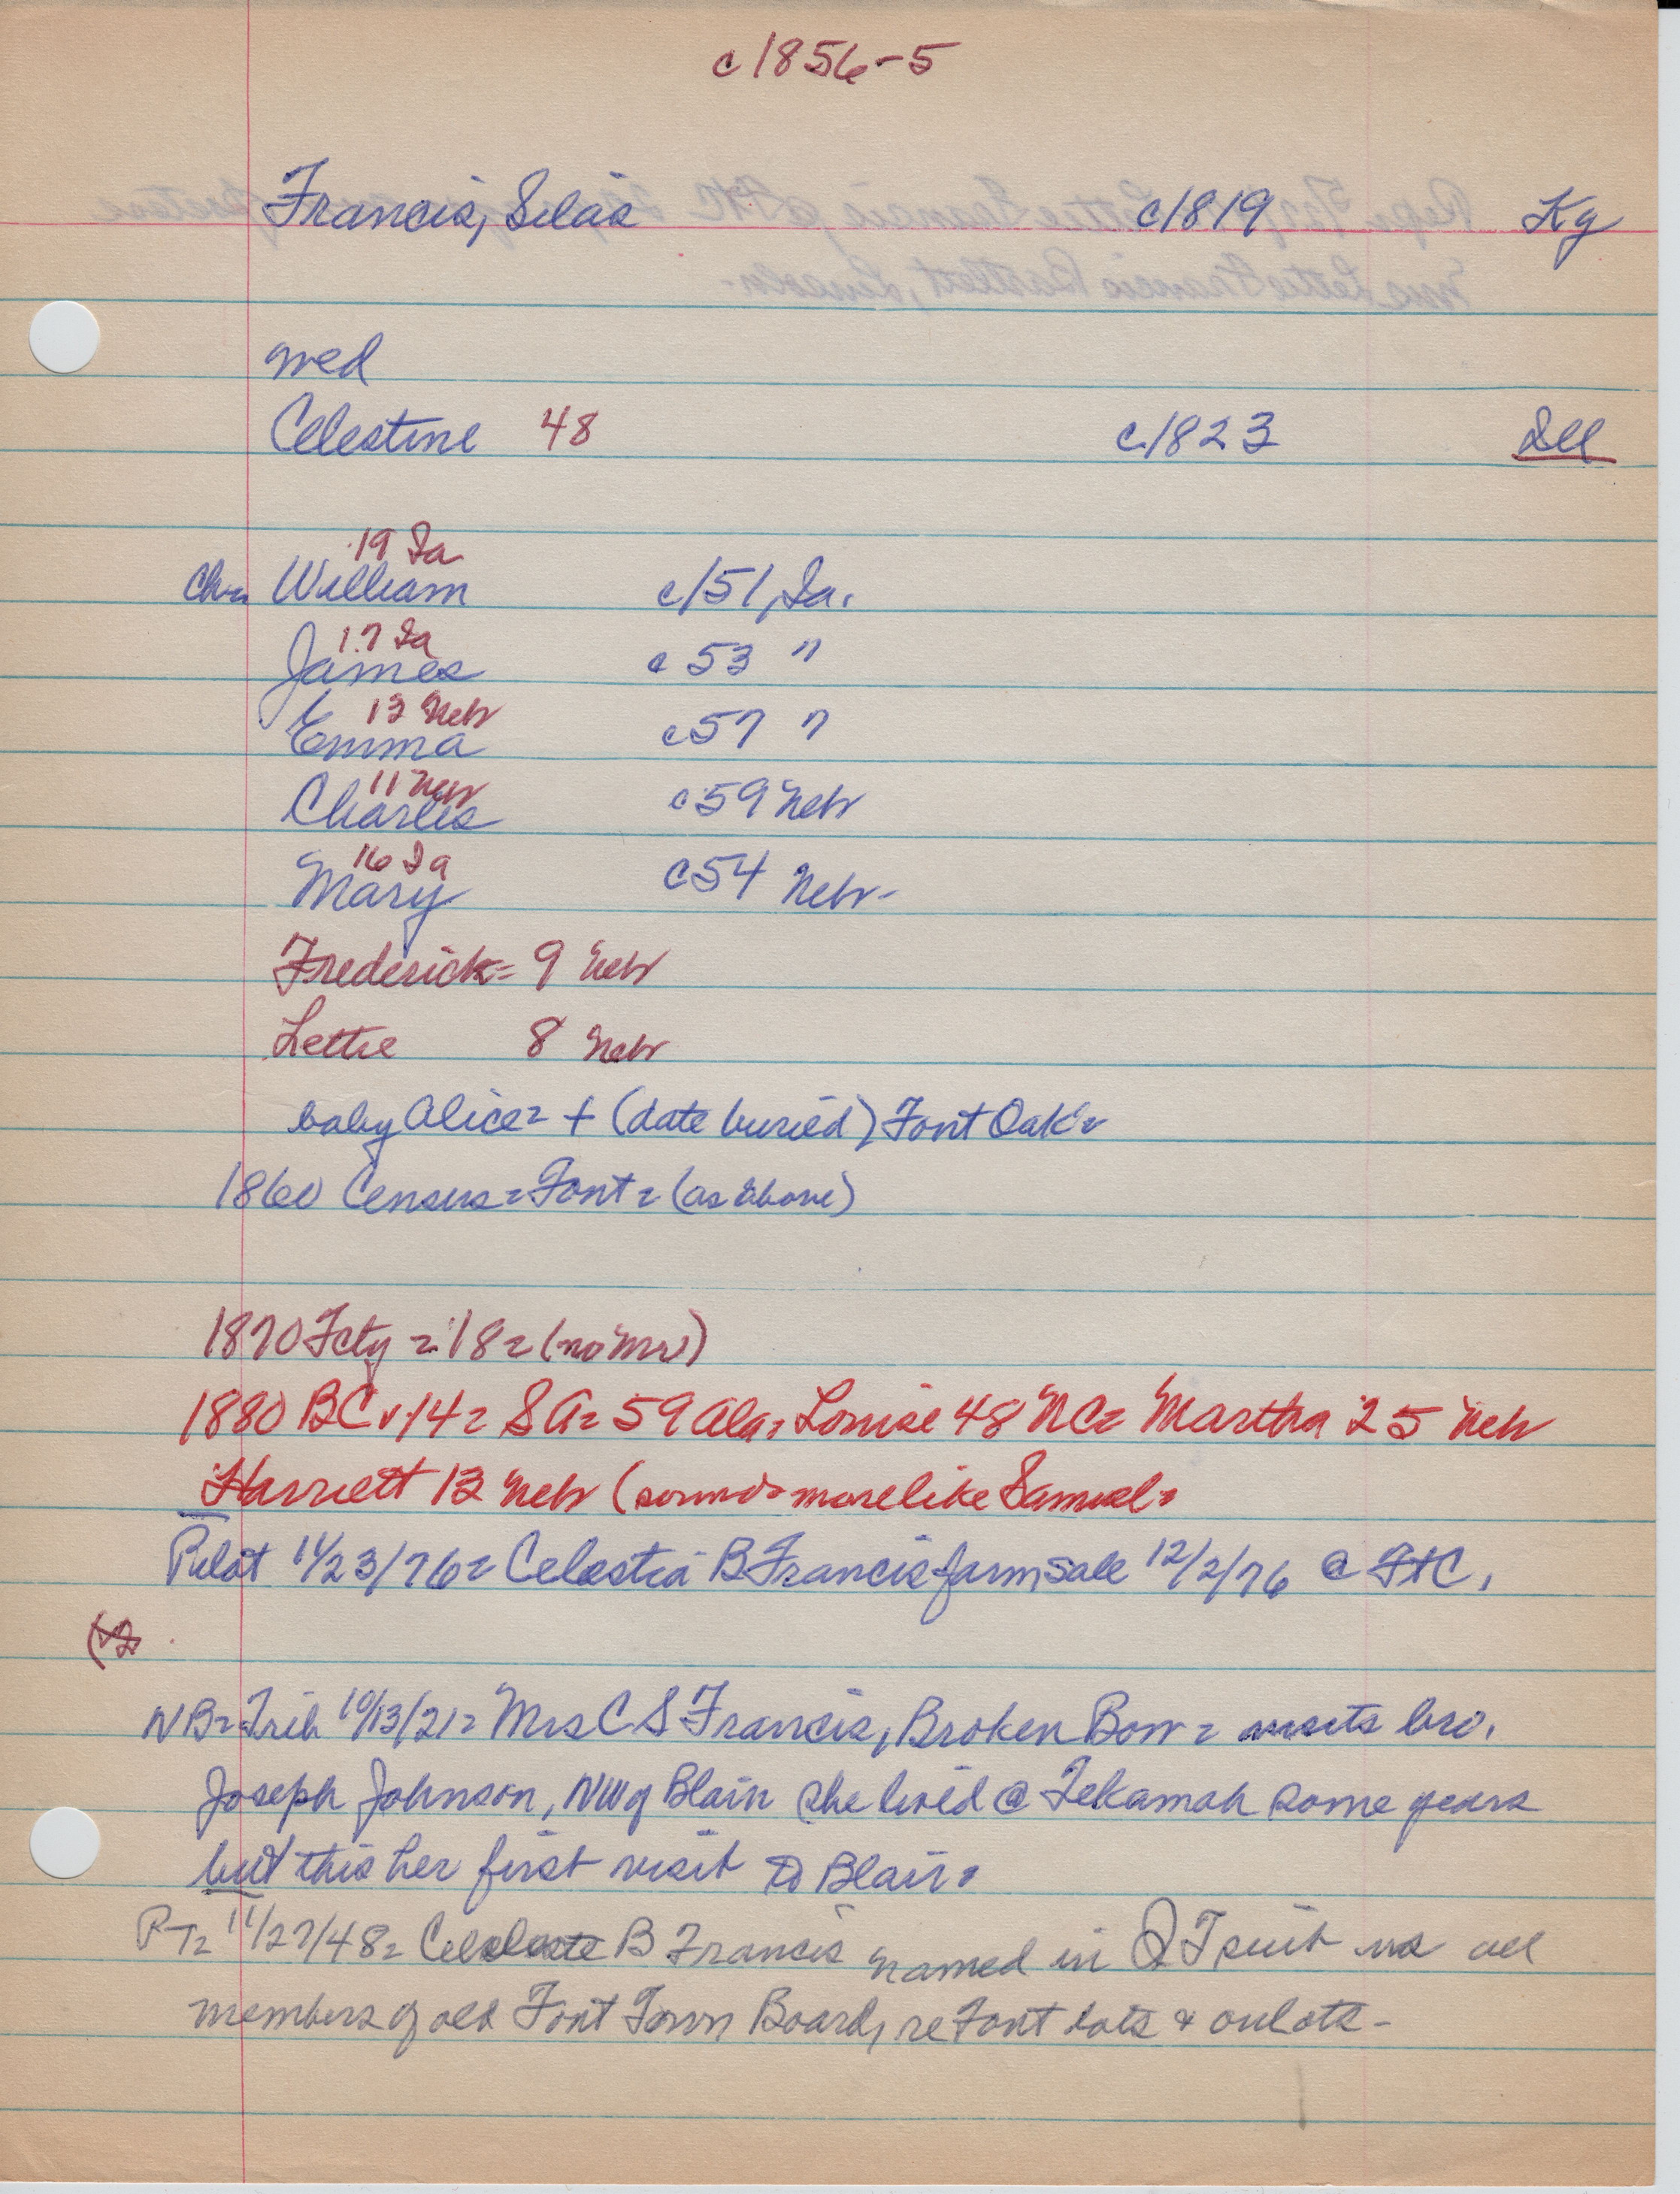 c1856-5
Francis, Silas c1819 Ky
med
Celestine 48 c1823 Ill
19 Ia
Chn William c/51, Ia.
17 Ia
James c53 "
13 Nebr
Emma c57 "
11 Nebr
Charles c59 Nebr
16 Ia
Mary c54 Nebr-
Frederick= 9 Nebr
Lettie 8 Nebr
baby Alice= + (date buried) Font Oak=
1860 Census= Font= (as above)
1870 Fcty = 18= (no Mrs)
1880 BC 14= SA= 59 Ala, Louise 48 NC= Martha 25 Nebr
Harriett 13 Nebr (sounds more like Samuel=
Pilot 11/23/76= Celestia B Francis farm sale 12/2/76 @ FtC,
NB=Trib 10/13/21= Mrs C S Francis, Broken Bow= visits bro.
Joseph Johnson, NW of Blair she lived @ Tekamah some years
but this her first visit to Blair=
PT= 11/27/48= B Francis named in QT suit vs all
members of old Font Town Board, re Font lots & outlots-